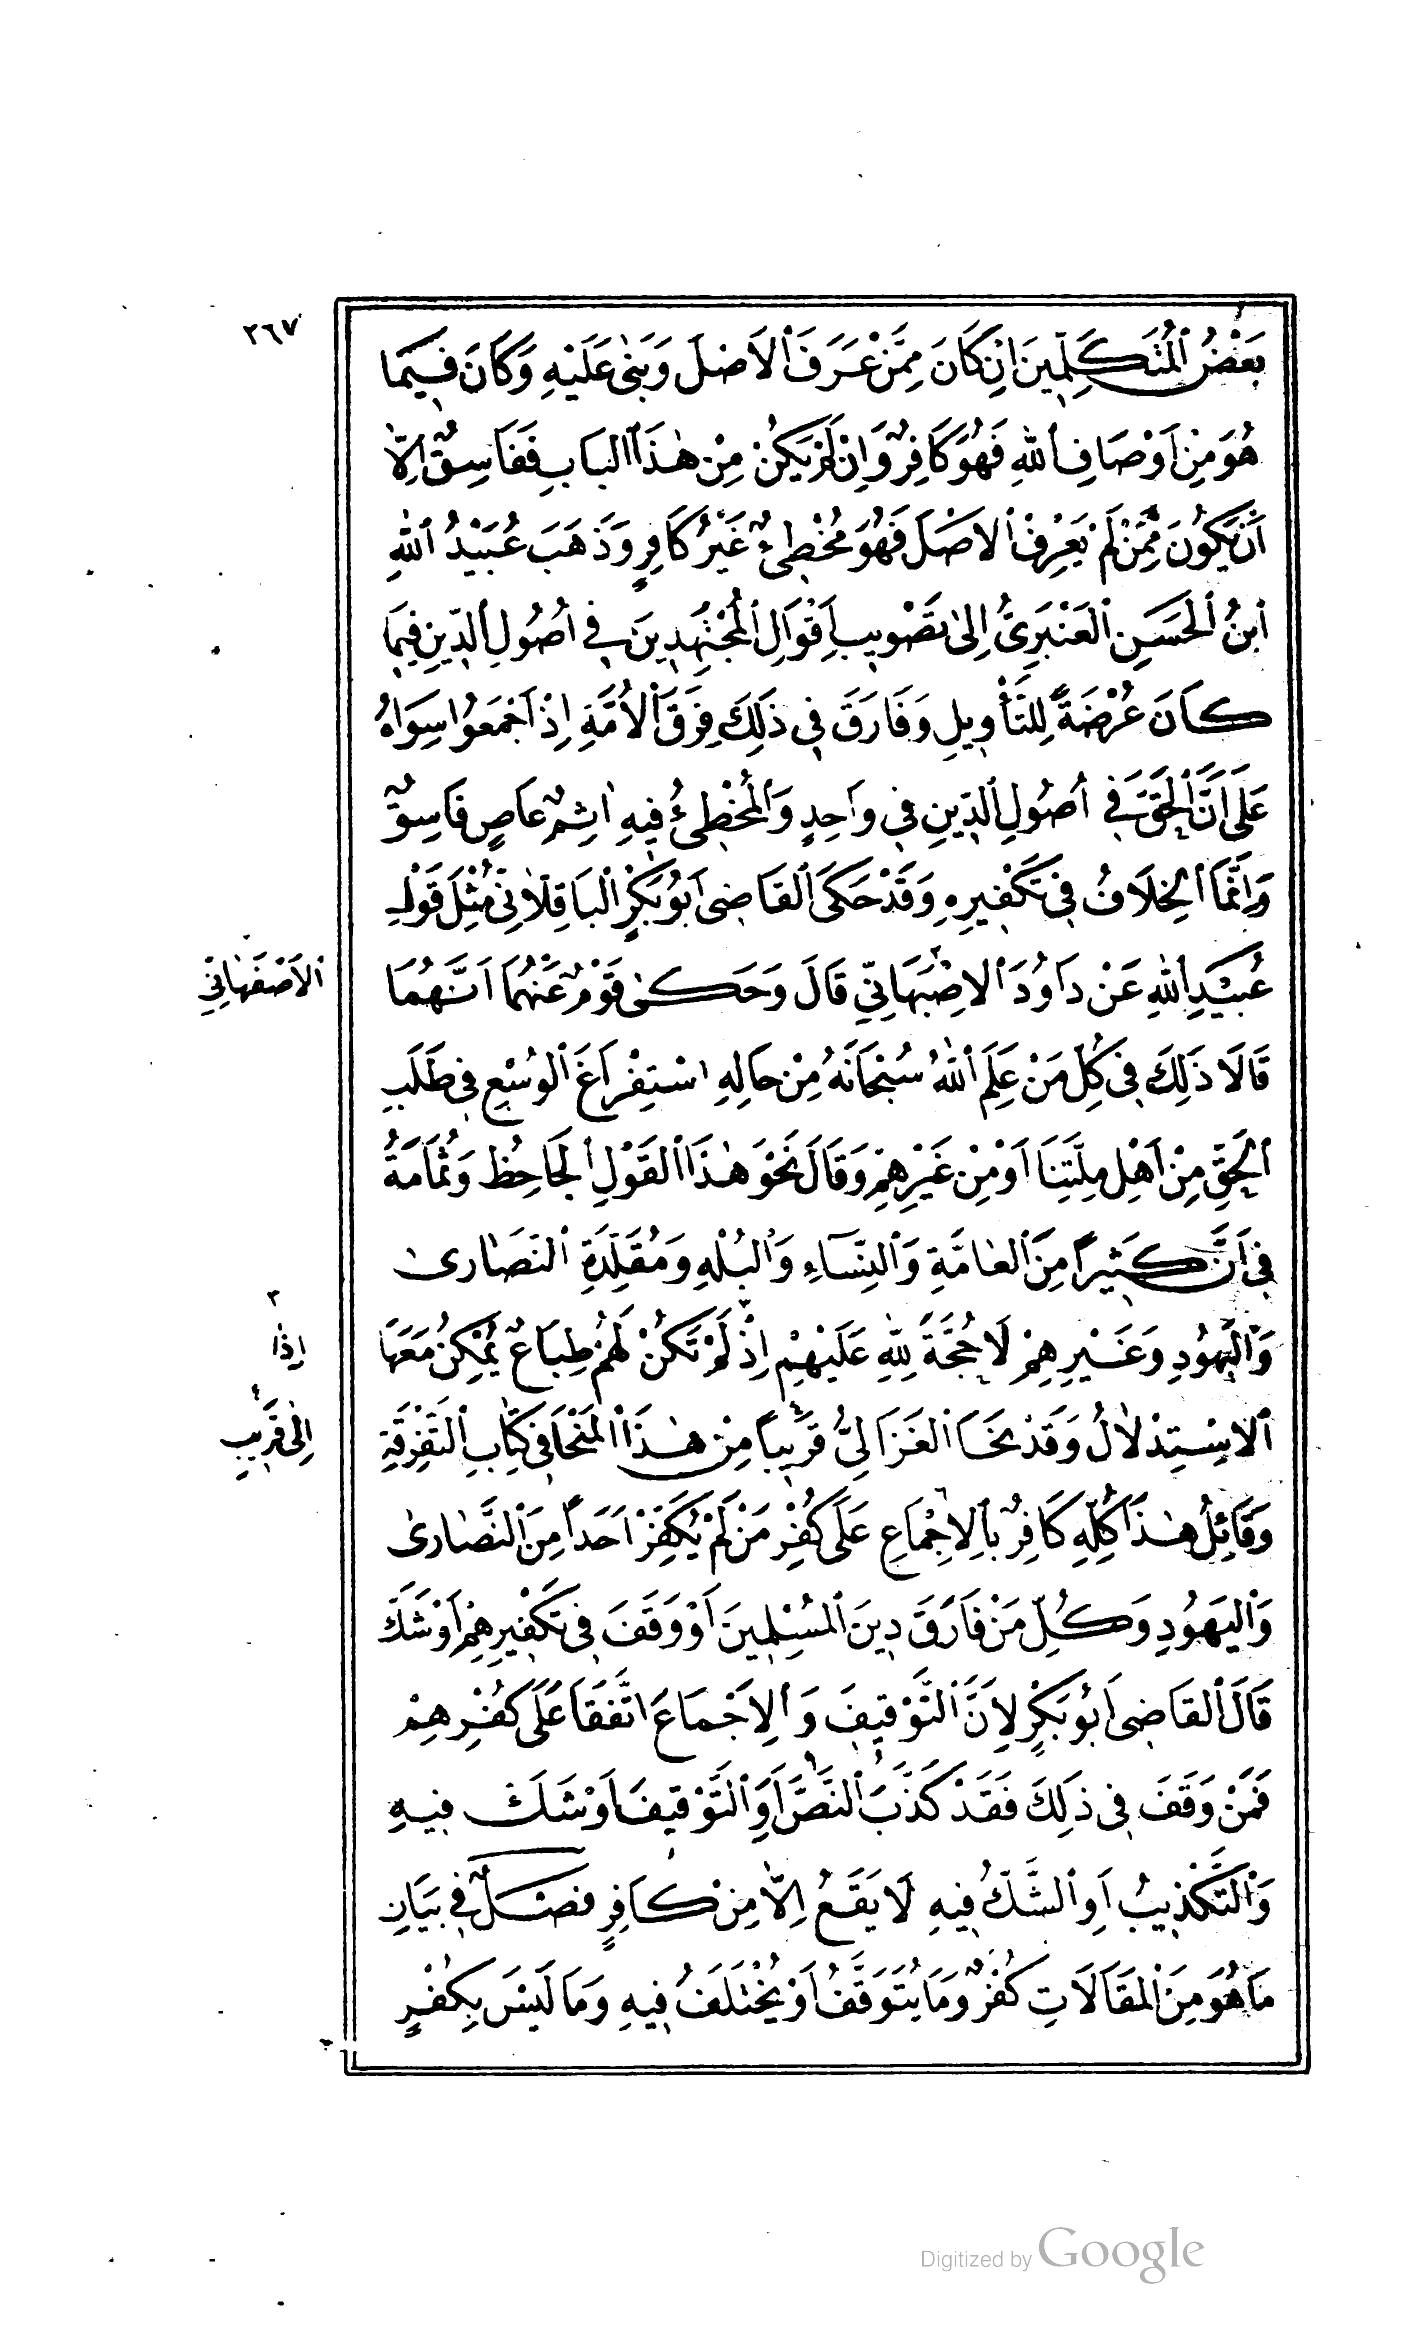 ٢٦٧
بَعْضُ ٱلْمُتَكَلِّمِينَ اِنْ كَانَ مِمَّنْ عَرَفَ ٱلْاَصْلَ وَبَنٰى عَلَيْهِ وَكَانَ فِيمَا
هُوَ مِنْ اَوْصَافِ ٱللّٰهِ فَهُوَ كَافِرٌ وَاِنْ لَمْ يَكُنْ مِنْ هٰذَا ٱلْبَابِ فَفَاسِقٌ اِلَّا
اَنْ يَكُونَ مِمَّنْ لَمْ يَعْرِفْ ٱلْاَصْلَ فَهُوَ مُخْطِئٌ غَيْرُ كَافِرٍ وَذَهَبَ عُبَيْدُ ٱللّٰهِ
ٱبْنُ ٱلْحَسَنِ ٱلْعَنْبَرِىُّ اِلٰى تَصْوِيبِ اَقْوَالِ ٱلْمُجْتَهِدِينَ فِى اُصُولِ ٱلدِّينِ فِيمَا
كَانَ عُرْضَةً لِلتَّأْوِيلِ وَفَارَقَ فِى ذٰلِكَ فِرَقَ ٱلْاُمَّةِ اِذْ اَجْمَعُوا سِوَاهُ
عَلَى اَنَّ ٱلْحَقَّ فِى اُصُولِ ٱلدِّينِ فِى وَاحِدٍ وَٱلْمُخْطِئُ فِيهِ اٰثِمٌ عَاصٍ فَاسِقٌ
وَاِنَّمَا ٱلْخِلَافُ فِى تَكْفِيرِهِ وَقَدْ حَكَى ٱلْقَاضِى اَبُو بَكْرٍ ٱلْبَاقِلَّانِىُّ مِثْلَ قَوْلِ
عُبَيْدِ ٱللّٰهِ عَنْ دَاوُدَ ٱلْاِصْبَهَانِىِّ قَالَ وَحَكٰى قَوْمٌ عَنْهُمَا اَنَّهُمَا
ٱلْاَصْفَهَانِىِّ
قَالَا ذٰلِكَ فِى كُلِّ مَنْ عَلِمَ ٱللّٰهُ سُبْحَانَهُ مِنْ حَالِهِ اسْتِفْرَاغَ ٱلْوُسْعِ فِى طَلَبِ
ٱلْحَقِّ مِنْ اَهْلِ مِلَّتِنَا اَوْ مِنْ غَيْرِهِمْ وَقَالَ نَحْوَ هٰذَا ٱلْقَوْلِ ٱلْجَاحِظُ وَثُمَامَةُ
فِى اَنَّ كَثِيرًا مِنَ ٱلْعَامَّةِ وَٱلنِّسَاءِ وَٱلْبُلْهِ وَمُقَلِّدَةِ ٱلنَّصَارٰى
وَٱلْيَهُودِ وَغَيْرِهِمْ لَا حُجَّةَ لِلّٰهِ عَلَيْهِمْ اِذْ لَمْ تَكُنْ لَهُمْ طِبَاعٌ يُمْكِنُ مَعَهَا
٢
اِذَا
ٱلْاِسْتِدْلَالُ وَقَدْ نَحَا ٱلْغَزَالِىُّ قَرِيبًا مِنْ هٰذَا ٱلْمَنْحَا فِى كِتَابِ ٱلتَّفْرِقَةِ
اِلٰى قَرِيبٍ
وَقَائِلُ هٰذَا كُلِّهِ كَافِرٌ بِٱلْاِجْمَاعِ عَلَى كُفْرِ مَنْ لَمْ يُكَفِّرْ اَحَدًا مِنَ ٱلنَّصَارٰى
وَٱلْيَهُودِ وَكُلِّ مَنْ فَارَقَ دِينَ ٱلْمُسْلِمِينَ اَوْ وَقَفَ فِى تَكْفِيرِهِمْ اَوْ شَكَّ
قَالَ ٱلْقَاضِى اَبُو بَكْرٍ لِاَنَّ ٱلتَّوْقِيفَ وَٱلْاِجْمَاعَ اتَّفَقَا عَلَى كُفْرِهِمْ
فَمَنْ وَقَفَ فِى ذٰلِكَ فَقَدْ كَذَّبَ ٱلنَّصَّ اَوِ ٱلتَّوْقِيفَ اَوْ شَكَّ فِيهِ
وَٱلتَّكْذِيبُ اَوِ ٱلشَّكُّ فِيهِ لَا يَقَعُ اِلَّا مِنْ كَافِرٍ فَصْلٌ فِى بَيَانِ
مَا هُوَ مِنَ ٱلْمَقَالَاتِ كُفْرٌ وَمَا يُتَوَقَّفُ اَوْ يُخْتَلَفُ فِيهِ وَمَا لَيْسَ بِكُفْرٍ
Digitized by Google